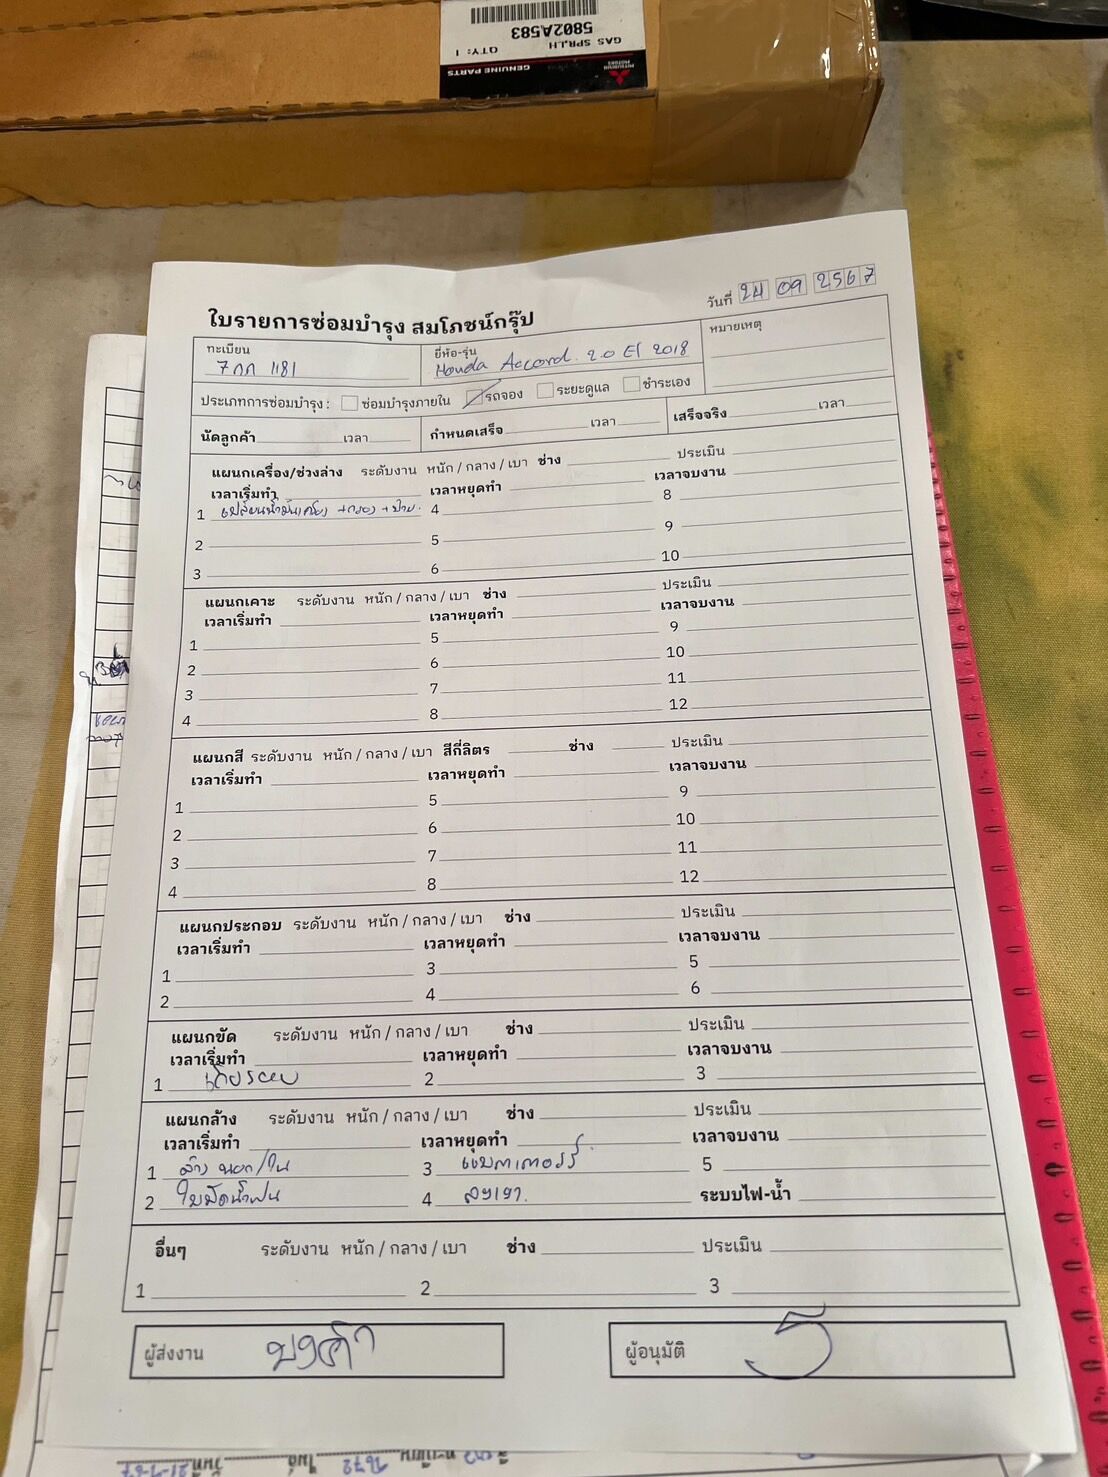 5802A583
GAS SPR,LH QTY: 1
MITSUBISHI MOTORS GENUINE PARTS
วันที่ 24 09 2567
ใบรายการซ่อมบำรุง สมโภชน์กรุ๊ป
ทะเบียน ยี่ห้อ-รุ่น หมายเหตุ
7กก 1181 Honda Accord 2.0 El 2018
ประเภทการซ่อมบำรุง : ซ่อมบำรุงภายใน รถจอง ระยะดูแล ชำระเอง
นัดลูกค้า เวลา กำหนดเสร็จ เวลา เสร็จจริง เวลา
แผนกเครื่อง/ช่วงล่าง ระดับงาน หนัก / กลาง / เบา ช่าง ประเมิน
เวลาเริ่มทำ เวลาหยุดทำ เวลาจบงาน
1 เปลี่ยนน้ำมันเครื่อง +กรอง +ป้าย. 4 8
2 5 9
3 6 10
แผนกเคาะ ระดับงาน หนัก / กลาง / เบา ช่าง ประเมิน
เวลาเริ่มทำ เวลาหยุดทำ เวลาจบงาน
1 5 9
2 6 10
3 7 11
4 8 12
แผนกสี ระดับงาน หนัก / กลาง / เบา สีกี่ลิตร ช่าง ประเมิน
เวลาเริ่มทำ เวลาหยุดทำ เวลาจบงาน
1 5 9
2 6 10
3 7 11
4 8 12
แผนกประกอบ ระดับงาน หนัก / กลาง / เบา ช่าง ประเมิน
เวลาเริ่มทำ เวลาหยุดทำ เวลาจบงาน
1 3 5
2 4 6
แผนกขัด ระดับงาน หนัก / กลาง / เบา ช่าง ประเมิน
เวลาเริ่มทำ เวลาหยุดทำ เวลาจบงาน
1 2 3
แผนกล้าง ระดับงาน หนัก / กลาง / เบา ช่าง ประเมิน
เวลาเริ่มทำ เวลาหยุดทำ เวลาจบงาน
1 ล้าง นอก/ใน 3 แบตเตอรรี่ 5
2 ใบปัดน้ำฝน 4 ระบบไฟ-น้ำ
อื่นๆ ระดับงาน หนัก / กลาง / เบา ช่าง ประเมิน
1 2 3
ผู้ส่งงาน ผู้อนุมัติ